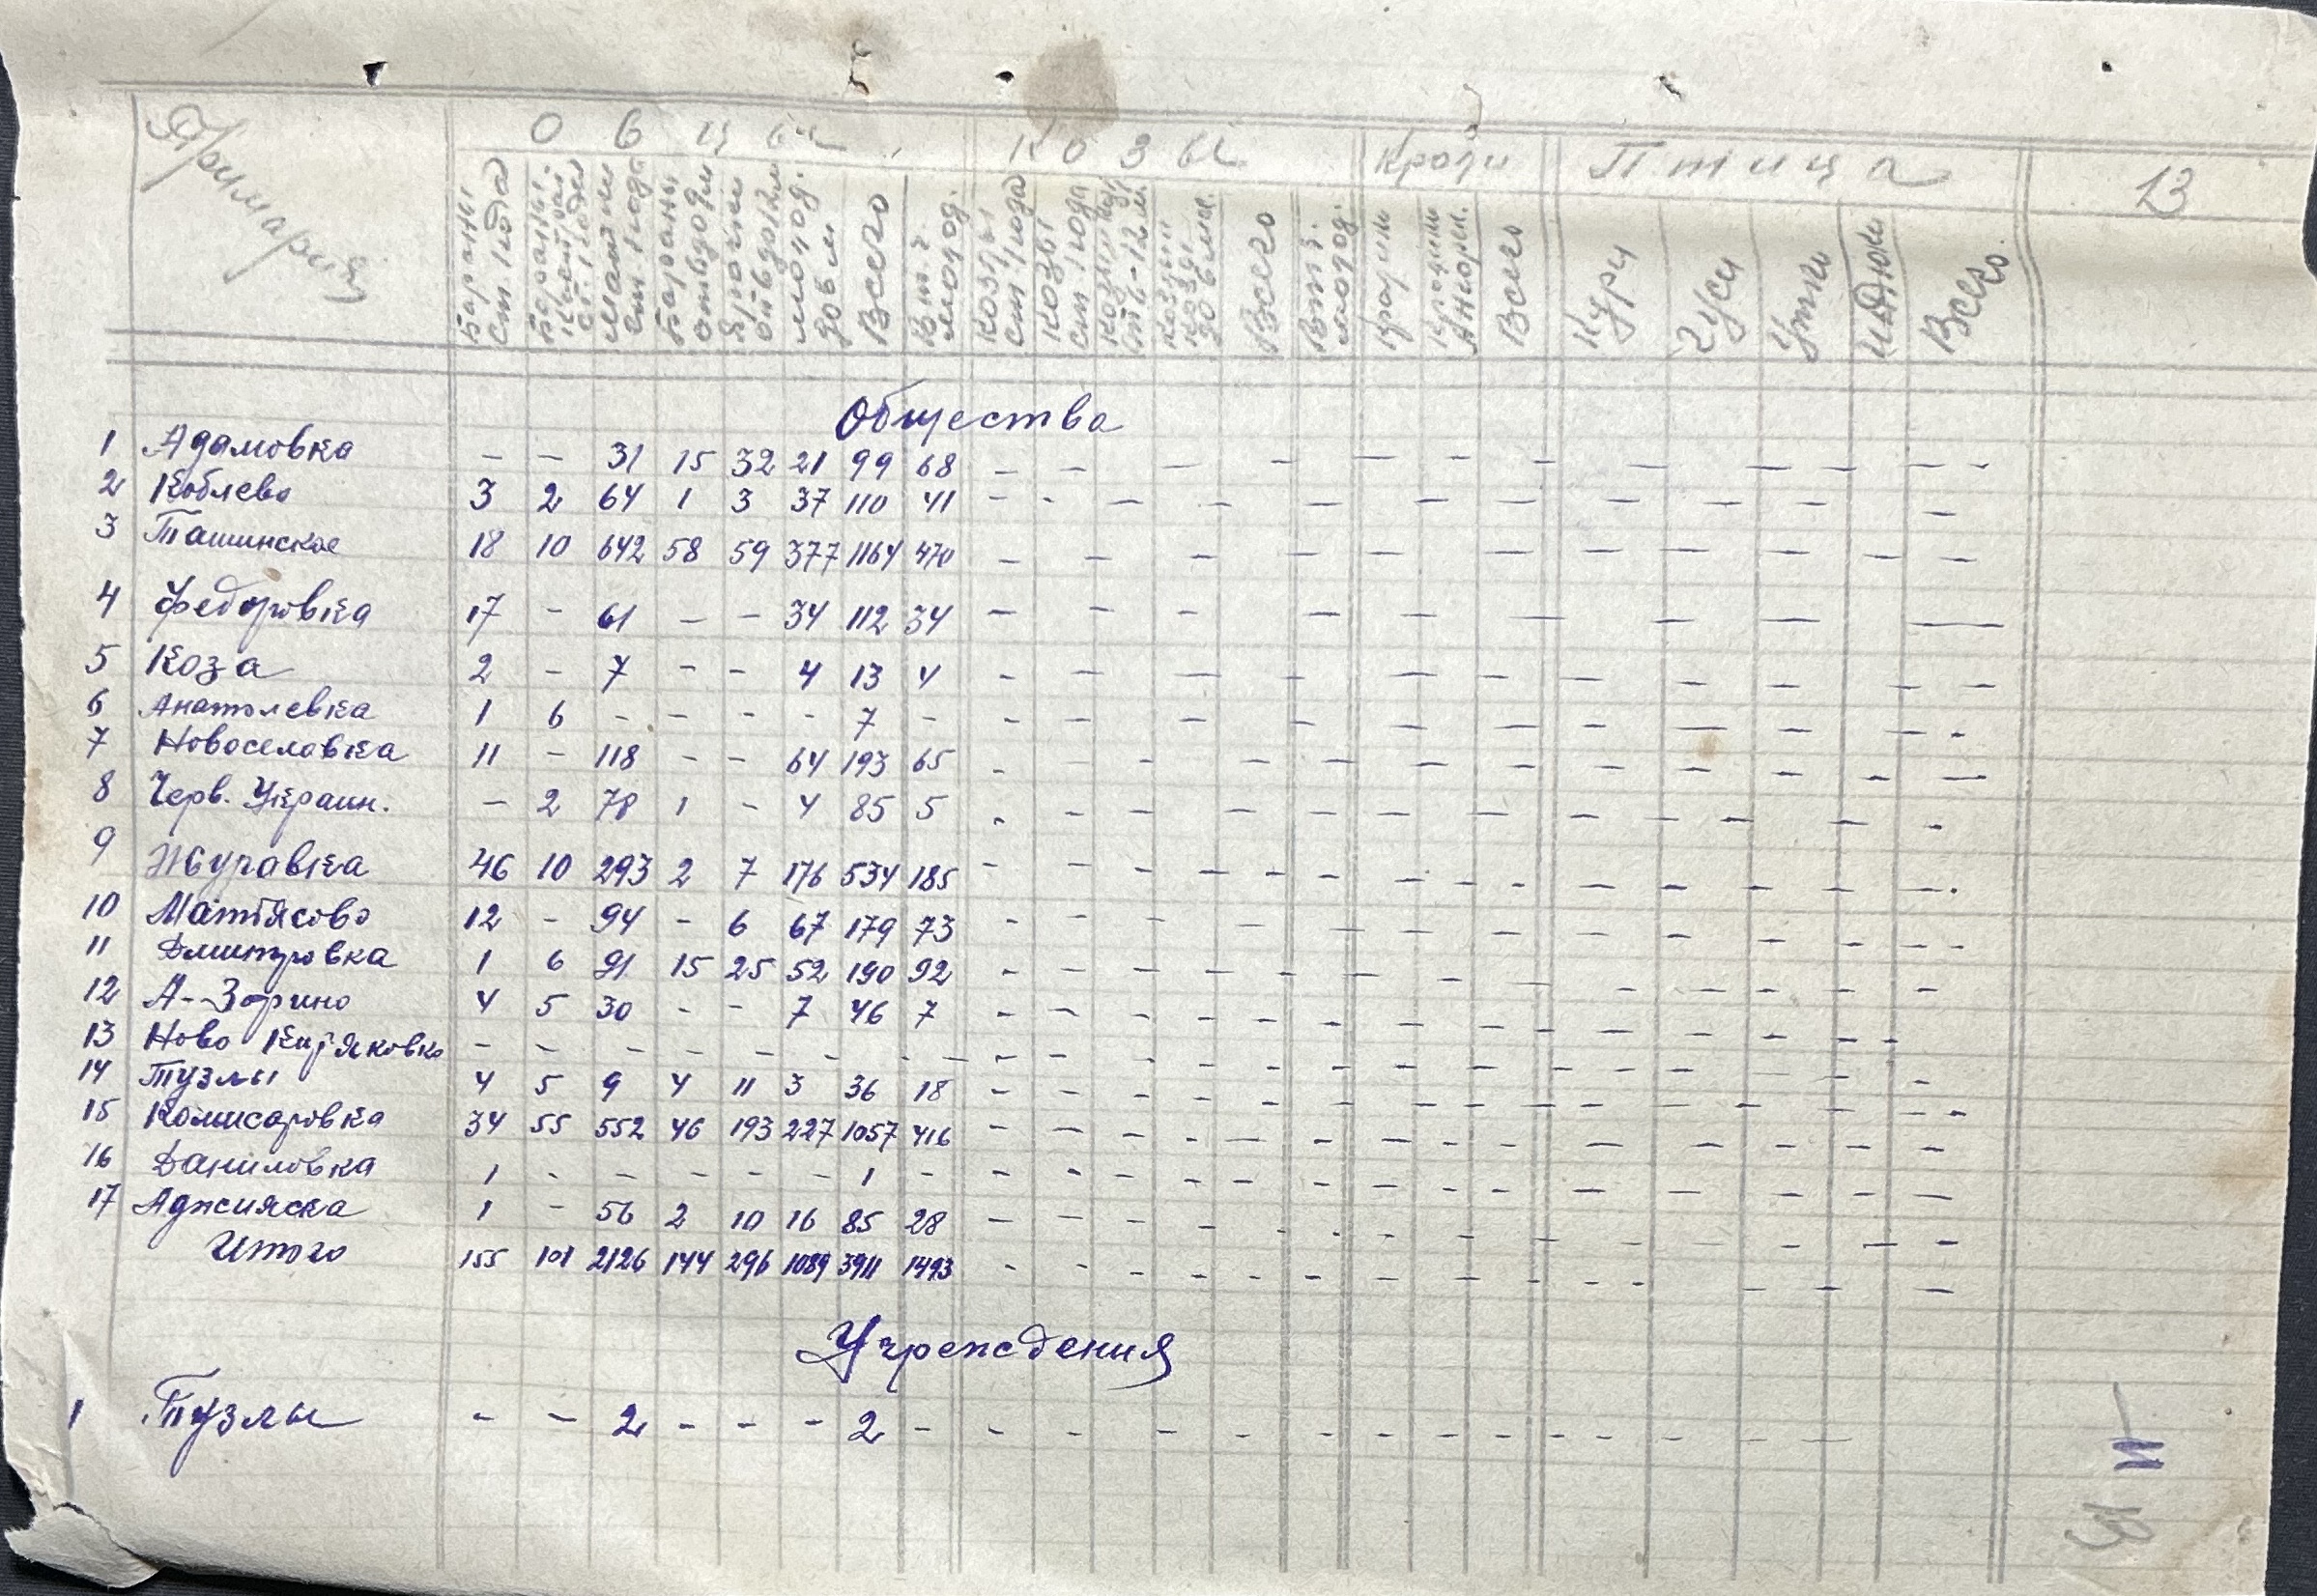 13
Примария
Овцы Козы Кроли Птица
Бараны ст. 1 года
Бараны. кастрат. ст. 1 года
Матки ст. 1 года
Бараны от 6 до 12 м
Ярочки от 6 до 12 м
молод. до 6 м
Всего
В т. ч. молод.
Козлы ст. 1 года
Козы ст. 1 года
до 6 мес.
Всего
В т. ч. молод.
Кролики
Кролики Ангорск.
Всего
Куры
Гуси
Утки
индюки
Всего.
Общества
1 Адамовка - - 31 15 32 21 99 68 - - - - - - - - - - - -
2 Коблево 3 2 64 1 3 37 110 41 - - - - - - - - - - -
3 Ташинское 18 10 642 58 59 377 1164 470 - - - - - - - - - - -
4 Федоровка 17 - 61 - - 34 112 34 - - - - - - - - -
5 Коза 2 - 7 - - 4 13 4 - - - - - - - - - - -
6 Анатолевка 1 6 - - - - 7 - - - - - - - - - - - -
7 Новоселовка 11 - 118 - - 64 193 65 - - - - - - - - - - - -
8 Черв. Украин. - 2 78 1 - 4 85 5 - - - - - - - - - - - -
9 Журавка 46 10 293 2 7 176 534 185 - - - - - - - - - - - - - -
10 Матіясово 12 - 94 - 6 67 179 73 - - - - - - - - - - - - -
11 Дмитровка 1 6 91 15 25 52 190 92 - - - - - - - - - - - - -
12 А-Зорино 4 5 30 - - 7 46 7 - - - - - - - - - - - - -
13 Ново Киряковка - - - - - - - - - - - - - - - - - - - -
14 Тузлы 4 5 9 4 11 3 36 18 - - - - - - - - - - - - - -
15 Комисаровка 34 55 552 46 193 227 1057 416 - - - - - - - - - - - - -
16 Даниловка 1 - - - - - 1 - - - - - - - - - - - - - -
17 Аджияска 1 - 56 2 10 16 85 28 - - - - - - - - - - - - - -
Итого 155 101 2126 144 296 1089 3911 1493 - - - - - - - - - - - - -
Учреждения
1 Тузлы - - 2 - - - 2 - - - - - - - - - - - - - -